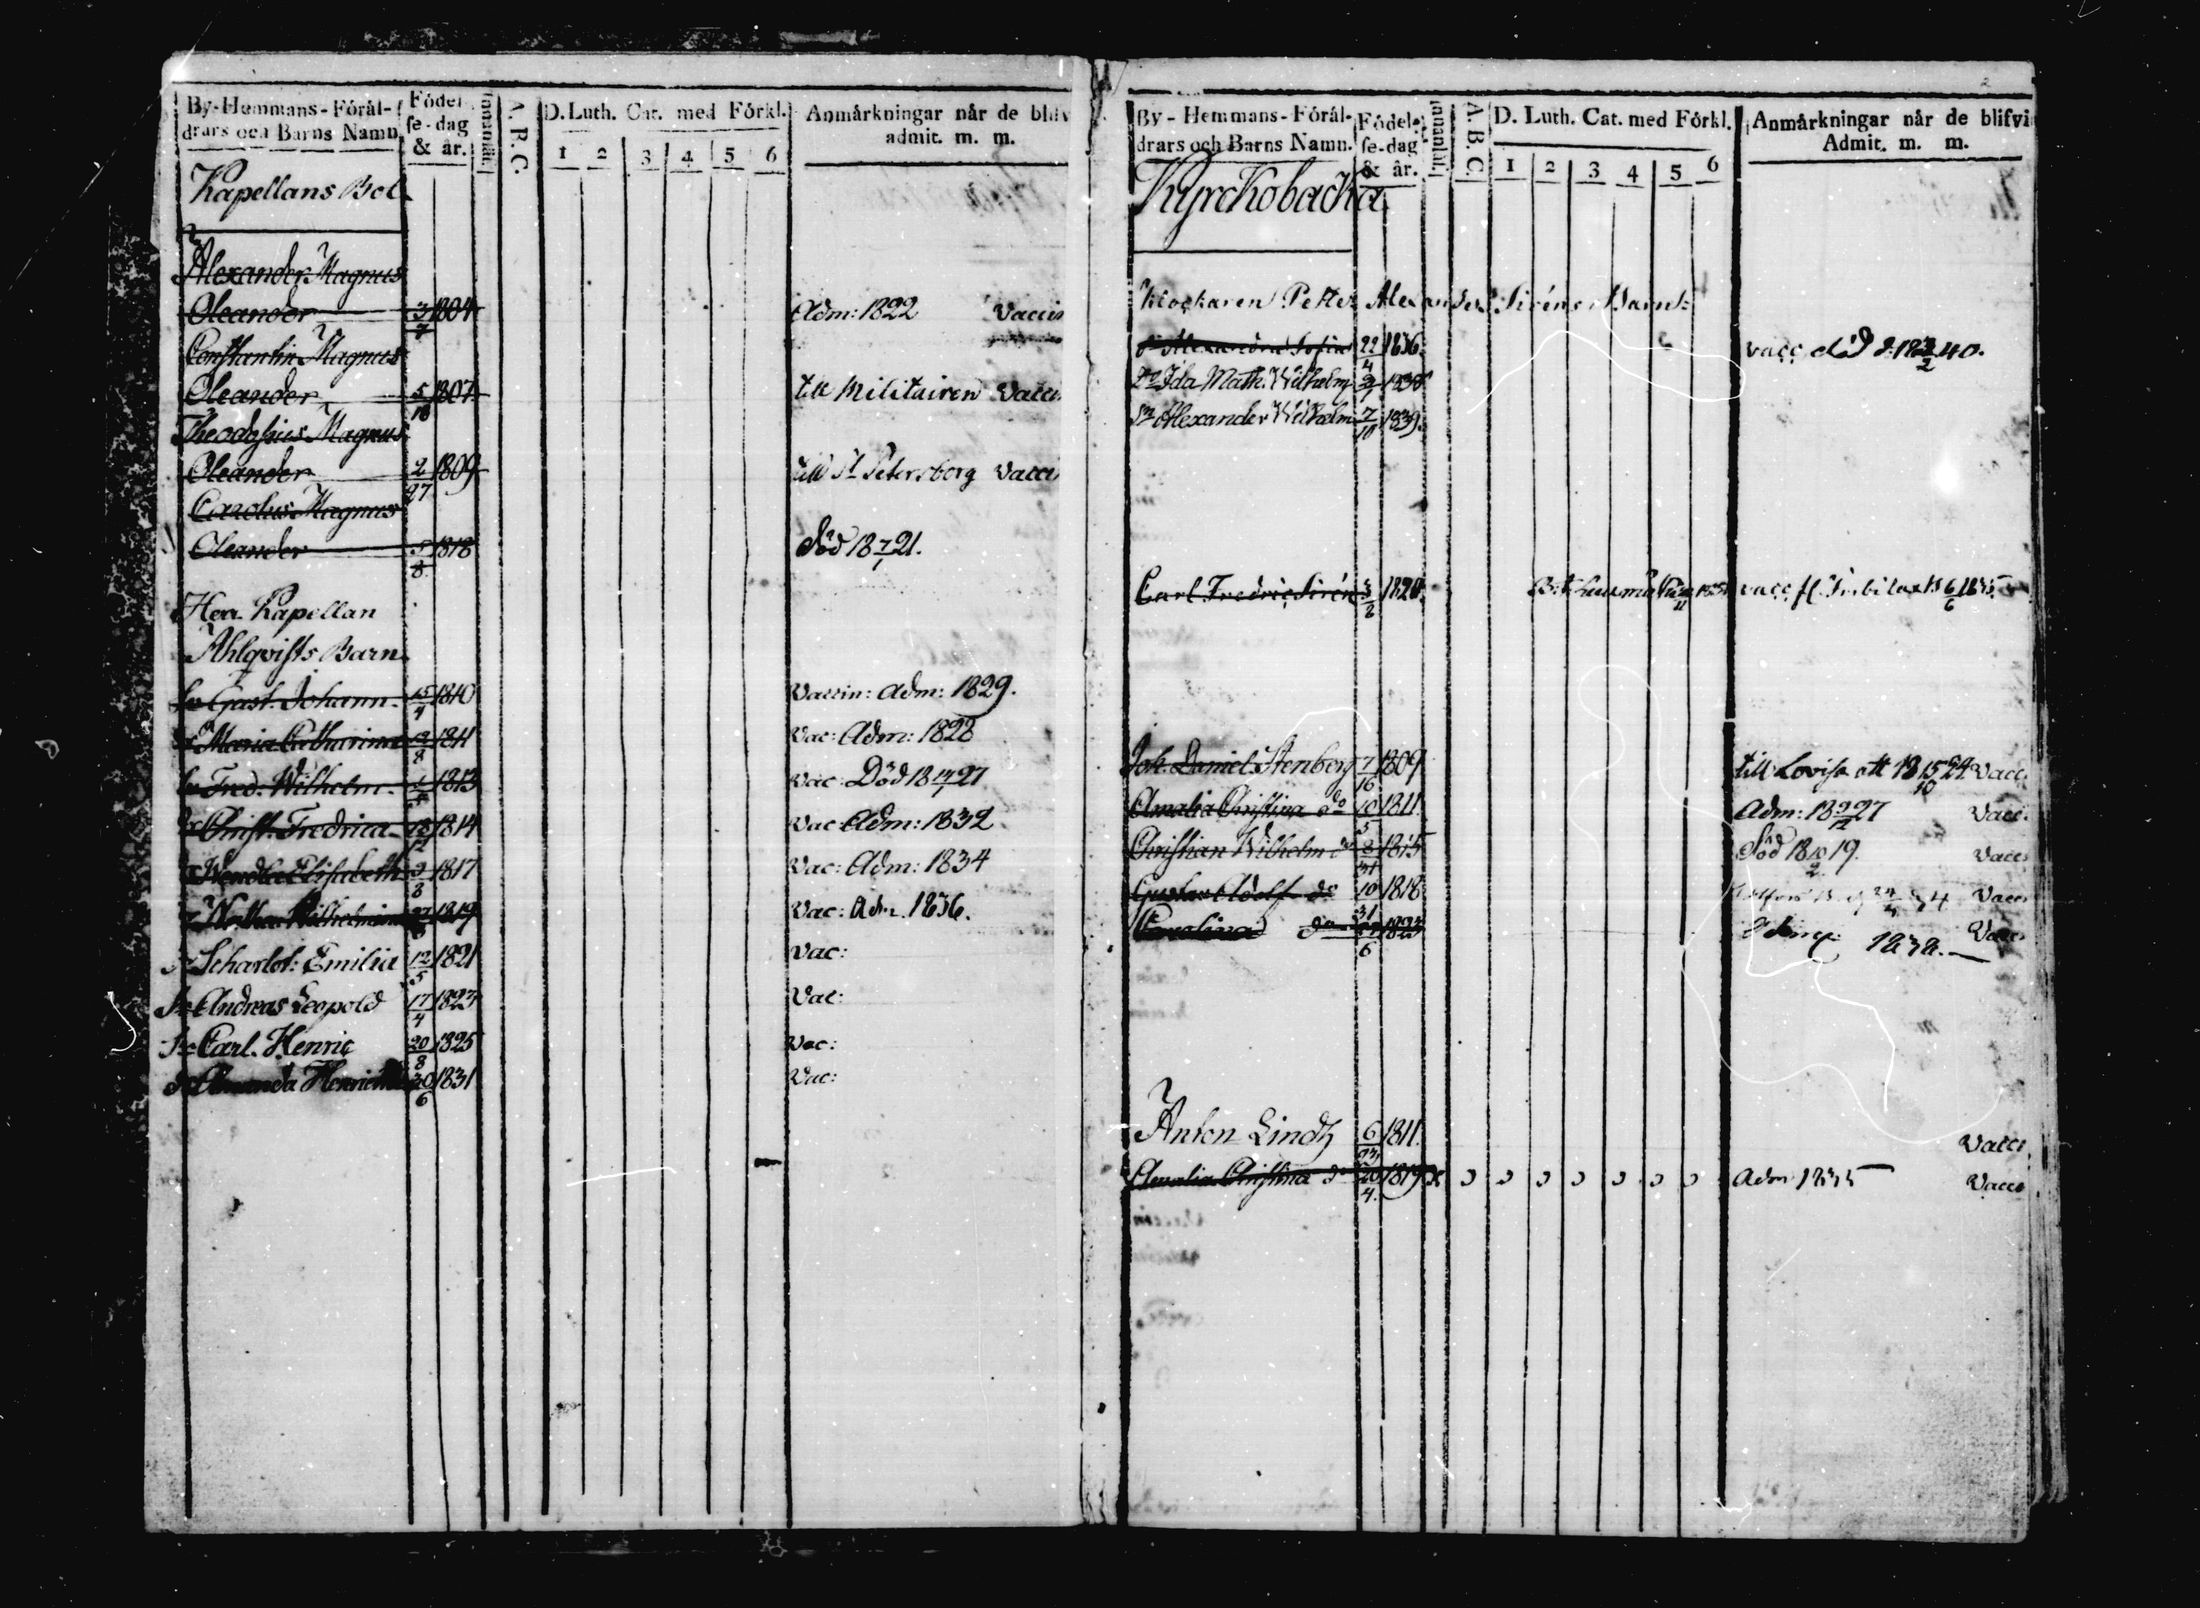 By-Hemmans-Förål- Födel-
drars och Barns Namn. se-dag & år. Innanläs. A. B. C. D. Luth. Cat. med Förkl. Anmårkningar når de blifv
1 2 3 4 5 6 admit. m. m.
Kapellans Bol
Alexander Magnus
Oleander 3/7 1804 Adm: 1822 Vaccin
Constantin Magnus
Oleander 5/18 1807 till Militairen Vacci
Theodosius Magnus
Oleander 2/27 1809 till St Petersborg Vacci
Carolus Magnus
Oleander 5/8 1818 död 18 7/1 21.
Herr Kapellan
Ahlqvists Barn
Gust. Johann. 15/4 1810 Vaccin: adm: 1829.
Maria Catharina 1811 Vac: Adm: 1828
Fred. Wilhelm. 1813 Vac: Död 18 27
Christ. Fredrica 1814 Vac: Adm: 1832.
Wendla Elisabeth 1817 Vac: Adm: 1834
Wilhelmina 1819 Vac: Adm. 1836.
Scharlot: Emilia 12/5 1821 Vac:
Andreas Leopold 17/4 1823 Vac:
Carl. Henric 20/8 1825 Vac:
Amanda Henrica 30/6 1831 Vac:
By-Hemmans-Förål- Födel-
drars och Barns Namn. se-dag & år. Innanläs. A. B. C. D. Luth. Cat. med Förkl. Anmårkningar når de blifvi
1 2 3 4 5 6 Admit. m. m.
Kyrckobacka
Klockaren Petter Alexander Siréns Barn:
Alexandra Sofia 22/4 1836. vacc död d. 18 40.
Ida Math. Wilhelm 1838
Alexander Wilhelm 7/10 1839.
Carl Fredric Sirén 1820. vacc
Joh. Daniel Stenberg 7/16 1809 till Lovisa att 18 15/10 24 Vacc.
Amalia Christina do 10/5 1811. Adm: 18 27 Vacc.
Christian Wilhelm do 8/31 1815 död 18 19. Vacc
Gustav Adolf do 10/31 1818 Vacc
Carolina do 1823 Vacc
Anton Lindh 6/23 1811. Vacci
Amalia Christina do 20/4. 1819 x Adm 1835 Vacci